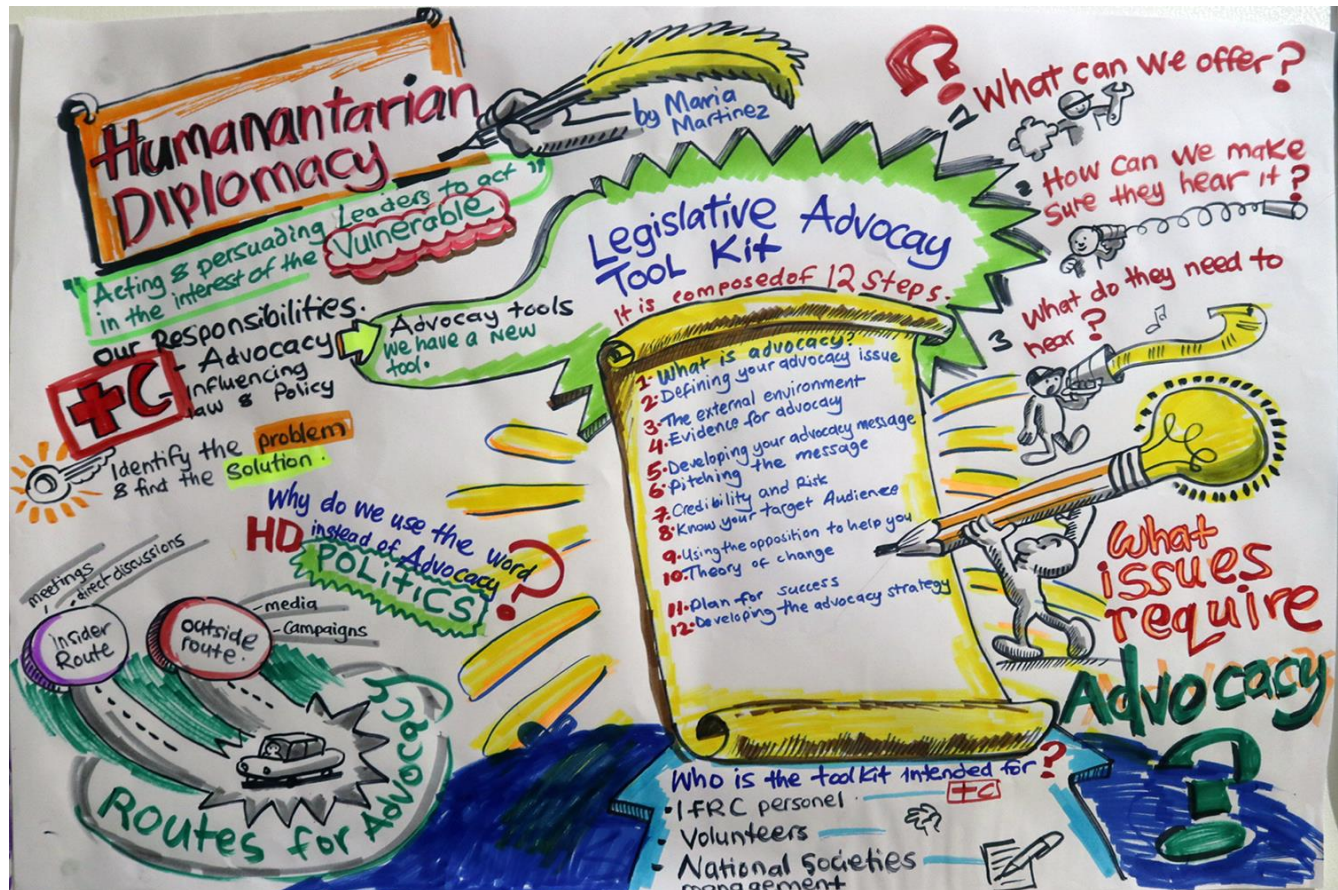 Humanantarian
Diplomacy
by Maria
Martinez
"Acting & persuading Leaders to act"
in the interest of the Vulnerable
our Responsibilities.
- Advocacy
Influencing
law & Policy
+C
Identify the problem
& find the solution.
Why do we use the word
HD instead of Advocacy
POLITICS ?
meetings
direct discussions
insider
Route
outside
route.
- media
- Campaigns
Routes for Advocacy
Advocay tools
we have a new
tool.
Legislative Advocay
Tool Kit
It is composed of 12 Steps.
1. What is advocacy?
2. Defining your advocacy issue
3. The external environment
4. Evidence for advocay
5. Developing your advocacy message
6. Pitching the message
7. Credibility and Risk
8. Know your target Audience
9. Using the opposition to help you
10. Theory of change
11. Plan for success
12. Developing the advocacy strategy
Who is the toolkit intended for?
+C
• IFRC personel
• Volunteers
• National Societies
management
?
1 What can we offer?
2 How can we make
sure they hear it?
3 What do they need to
hear?
What
issues
require
Advocacy
?